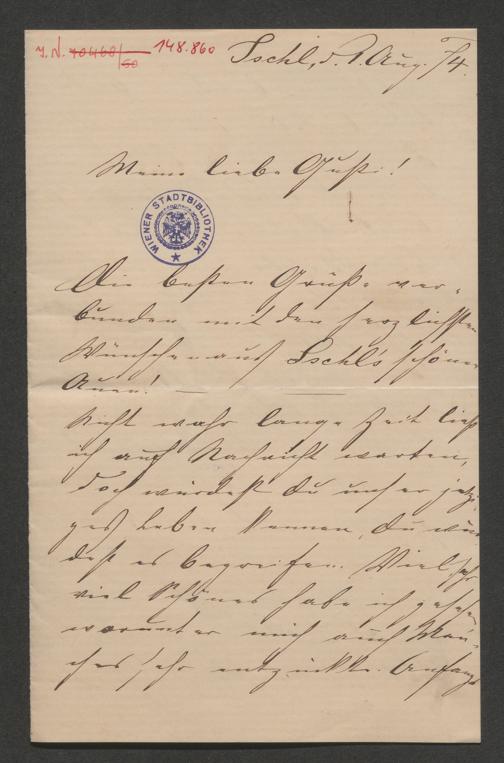 J.N. 70460/60 148.860
Ischl, d. 1. Aug. 74.
Meine liebe Gusti!
WIENER STADTBIBLIOTHEK
Die besten Grüße ver-
bunden mit den herzlichsten
Wünschen aus Ischl's schönen
Auen! —
Nicht wahr lange Zeit ließ
ich auf Nachricht warten,
doch würdest Du unser jetzi-
ges Leben kennen, Du wür-
dest es begreifen. Viel sehr
viel Schönes habe ich gesehen
worunter mich auch Man-
ches sehr entzückte. Anfangs